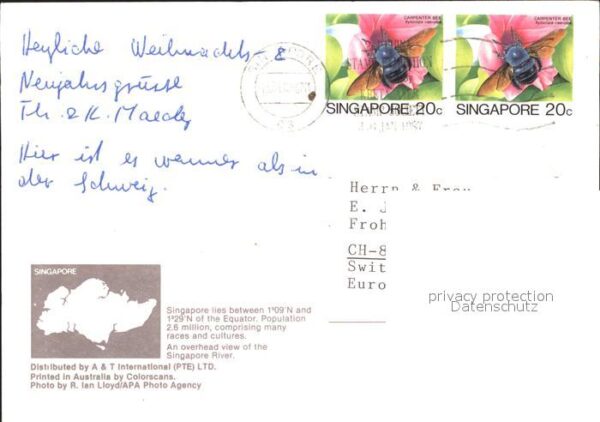 Herzliche Weihnachts- &
Neujahrsgrüsse
Th. & K. Maeder
Hier ist es wärmer als in
der Schweiz.
CARPENTER BEE
CARPENTER BEE
SINGAPORE 20c
SINGAPORE 20c
JAN 1987
Herrn & Frau
E. J
Froh
CH-8
Swit
Euro
privacy protection
Datenschutz
SINGAPORE
Singapore lies between 1°09'N and
1°29'N of the Equator. Population
2.6 million, comprising many
races and cultures.
An overhead view of the
Singapore River.
Distributed by A & T International (PTE) LTD.
Printed in Australia by Colorscans.
Photo by R. Ian Lloyd/APA Photo Agency